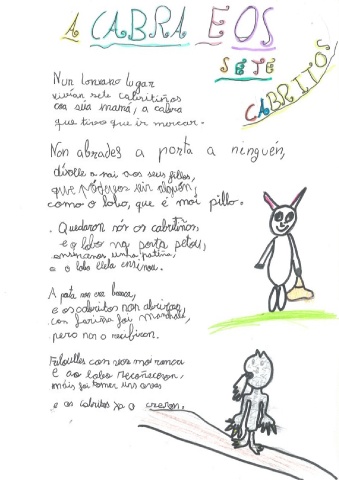 A CABRA E OS
SETE
CABRITOS
Nun lonxano lugar
vivían sete cabritiños
coa súa mamá, a cabra
que tivo que ir mercar.
Non abrades a porta a ninguén,
díxolle a nai aos seus fillos,
que pode vir alguén,
como o lobo, que é moi pillo.
. Quedaron sós os cabritiños,
e o lobo na porta petou,
unha patiña,
e o lobo lla ensinou.
A pata non era branca,
e os cabritos non abriron,
con fariña foi manchala,
pero non o recibiron.
Faloulles con voz moi ronca
E ao lobo recoñeceron,
máis foi tomar uns ovos
e os cabritos xa o creron.